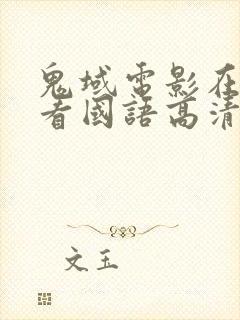 鬼域電影在
看國語高清
文玉